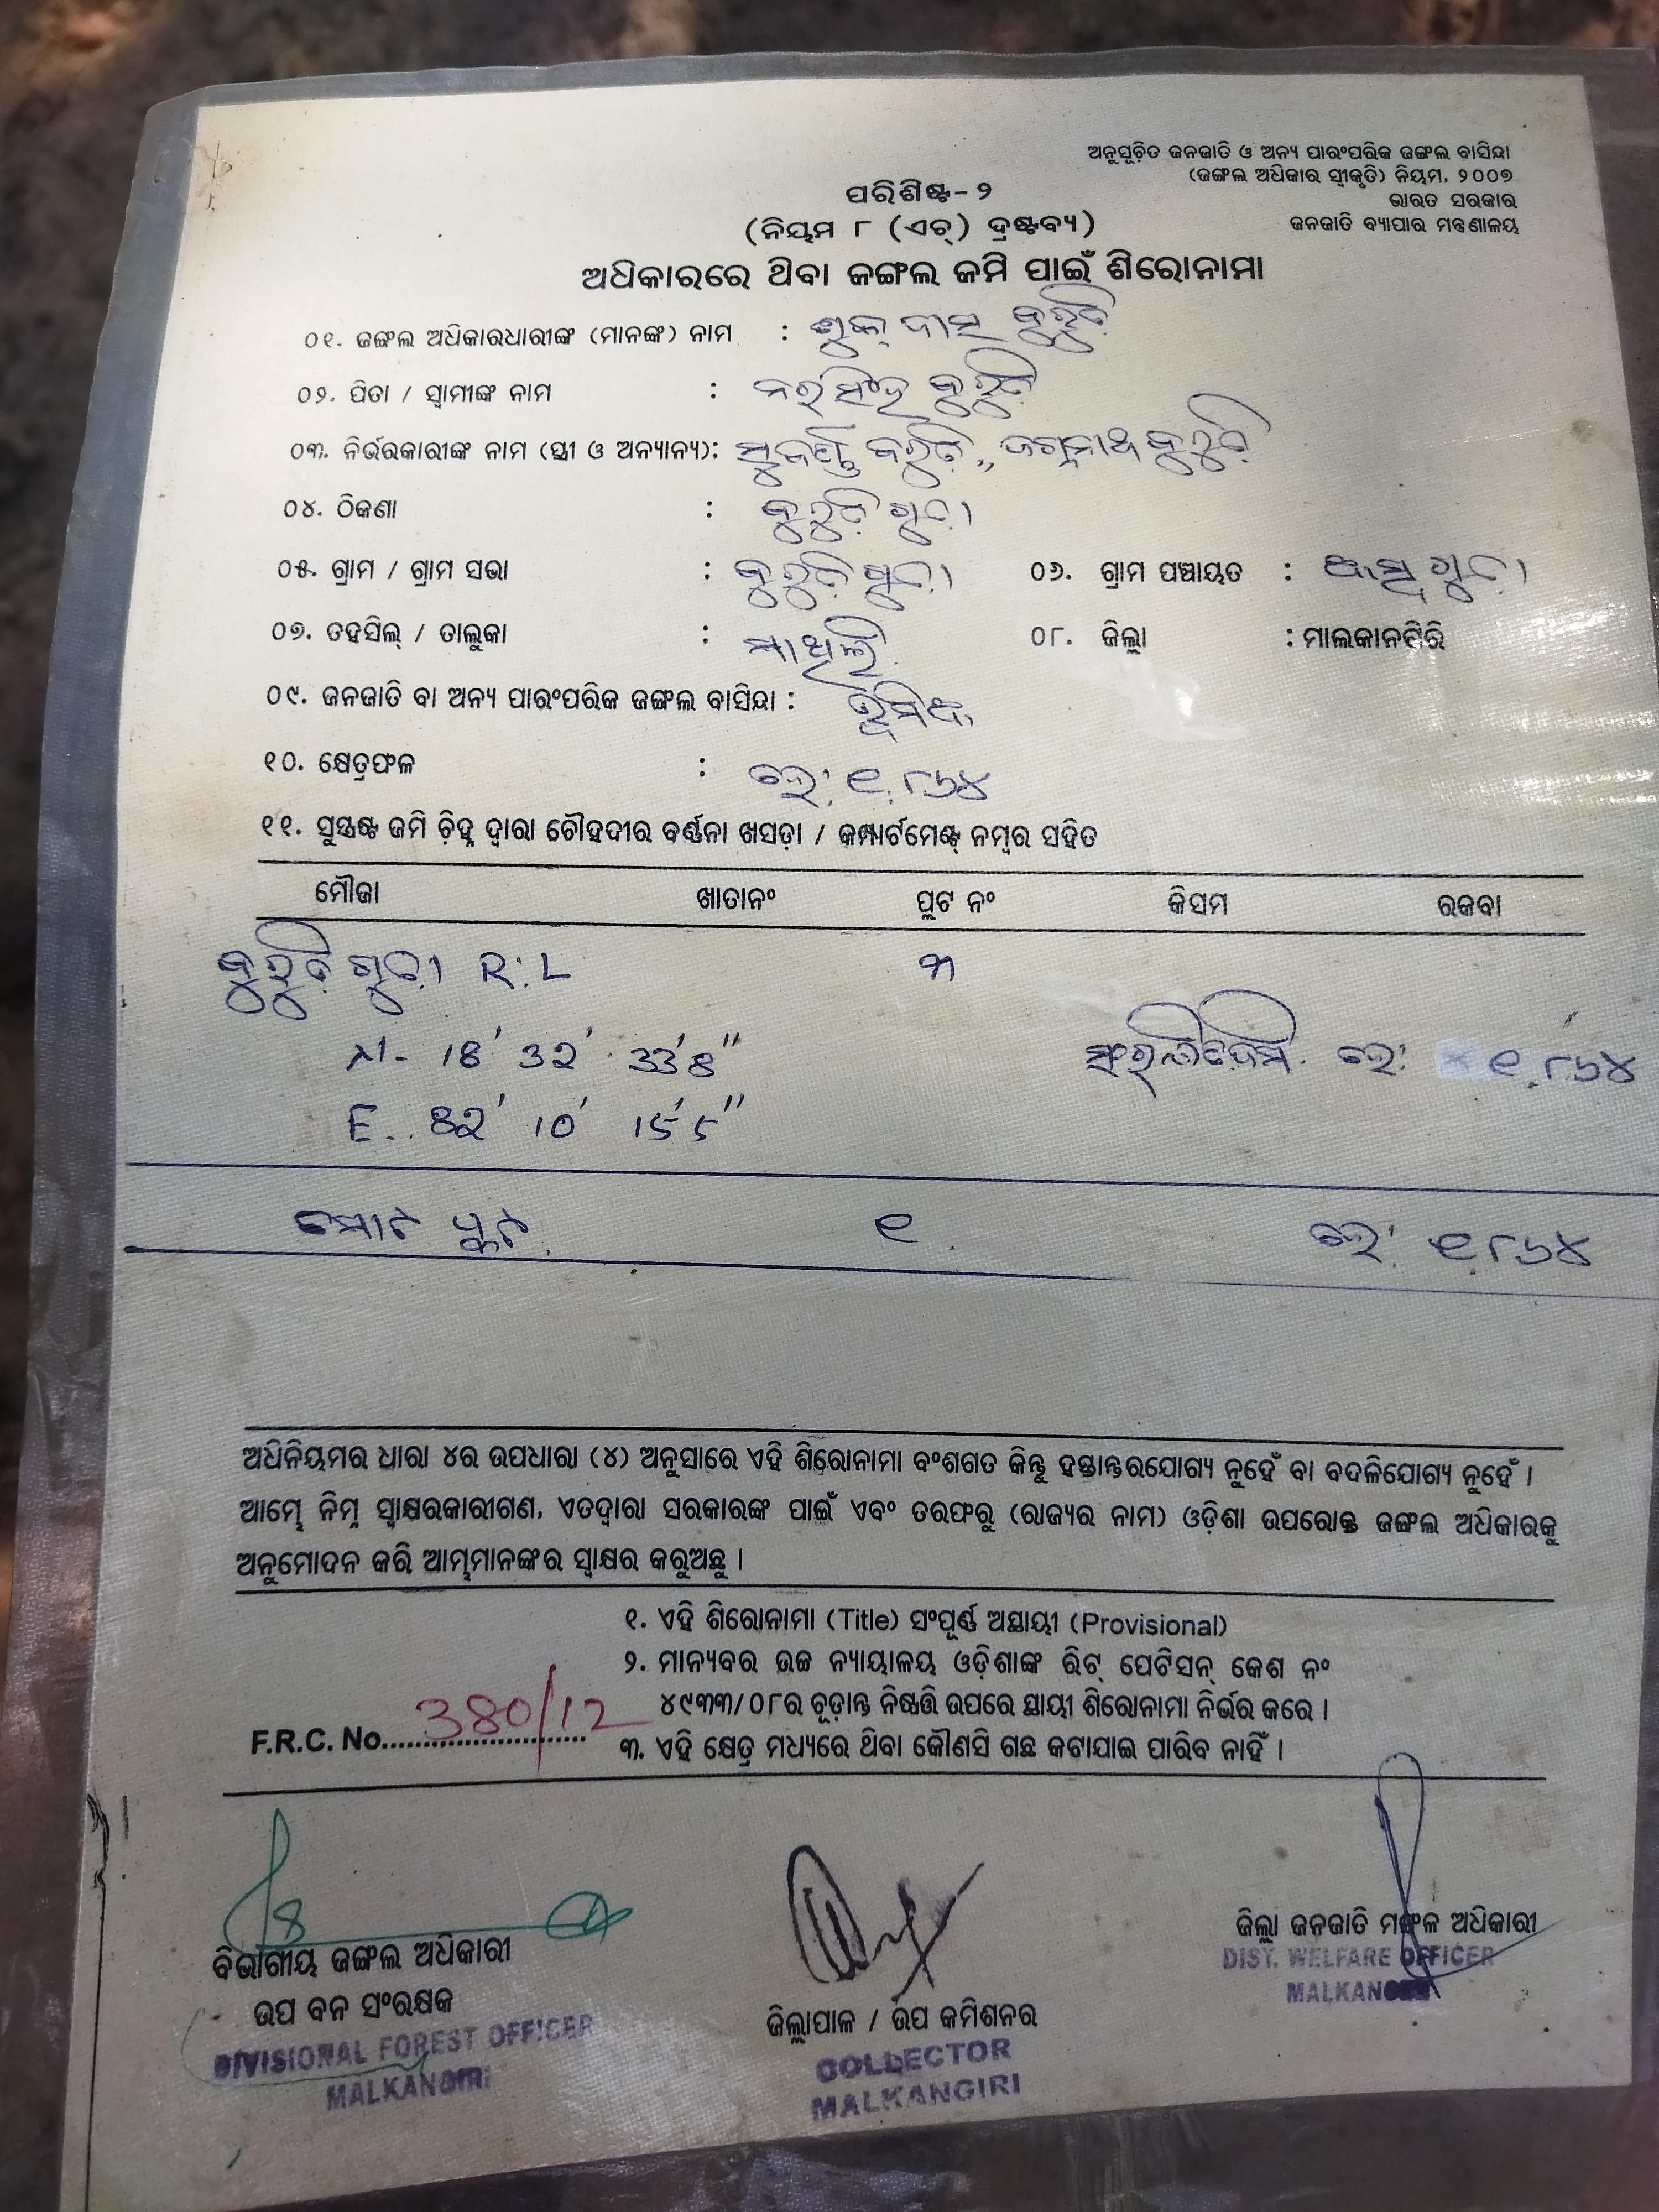 ଅନୁସୂଚିତ ଜନଜାତି ଓ ଅନ୍ୟ ପାରଂପରିକ ଜଙ୍ଗଲ ବାସିନ୍ଦା
(ଜଙ୍ଗଲ ଅଧିକାର ସ୍ୱୀକୃତି) ନିୟମ, ୨୦୦୭
ଭାରତ ସରକାର
ଜନଜାତି ବ୍ୟାପାର ମନ୍ତ୍ରଣାଳୟ
ପରିଶିଷ୍ଟ-୨
(ନିୟମ ୮ (ଏଚ୍) ଦ୍ରଷ୍ଟବ୍ୟ)
ଅଧିକାରରେ ଥିବା ଜଙ୍ଗଲ ଜମି ପାଇଁ ଶିରୋନାମା
୦୧. ଜଙ୍ଗଲ ଅଧିକାରଧାରୀଙ୍କ (ମାନଙ୍କ) ନାମ :
୦୨. ପିତା / ସ୍ୱାମୀଙ୍କ ନାମ : ନରସିଂହ କୁରୁଟି
୦୩. ନିର୍ଭରକାରୀଙ୍କ ନାମ (ସ୍ତ୍ରୀ ଓ ଅନ୍ୟାନ୍ୟ): ଜଗନ୍ନାଥ କୁରୁଟି
୦୪. ଠିକଣା : କୁରୁଟିଗୁଡ଼ା
୦୫. ଗ୍ରାମ / ଗ୍ରାମ ସଭା : କୁରୁଟିଗୁଡ଼ା ୦୬. ଗ୍ରାମ ପଞ୍ଚାୟତ :
୦୭. ତହସିଲ୍ / ତାଲୁକା : ମାଥିଲି ୦୮. ଜିଲ୍ଲା : ମାଲକାନଗିରି
୦୯. ଜନଜାତି ବା ଅନ୍ୟ ପାରଂପରିକ ଜଙ୍ଗଲ ବାସିନ୍ଦା : ଭୂମିଆ
୧୦. କ୍ଷେତ୍ରଫଳ : ହେ: ୧.୮୬୪
୧୧. ସୁସ୍ପଷ୍ଟ ଜମି ଚିହ୍ନ ଦ୍ୱାରା ଚୌହଦୀର ବର୍ଣ୍ଣନା ଖସଡ଼ା / କମ୍ପାର୍ଟମେଣ୍ଟ୍ ନମ୍ବର ସହିତ
ମୌଜା ଖାତାନଂ ପ୍ଲଟ ନଂ କିସମ ରକବା
କୁରୁଟିଗୁଡ଼ା R.L ୩
N- 18' 32' 33'8" ହେ: ୧.୮୬୪
E.. 82' 10' 15'5"
ମୋଟ ପ୍ଲଟ ୧ ହେ: ୧.୮୬୪
ଅଧିନିୟମର ଧାରା ୪ର ଉପଧାରା (୪) ଅନୁସାରେ ଏହି ଶିରୋନାମା ବଂଶଗତ କିନ୍ତୁ ହସ୍ତାନ୍ତରଯୋଗ୍ୟ ନୁହେଁ ବା ବଦଳିଯୋଗ୍ୟ ନୁହେଁ ।
ଆମ୍ଭେ ନିମ୍ନ ସ୍ୱାକ୍ଷରକାରୀଗଣ, ଏତଦ୍ୱାରା ସରକାରଙ୍କ ପାଇଁ ଏବଂ ତରଫରୁ (ରାଜ୍ୟର ନାମ) ଓଡ଼ିଶା ଉପରୋକ୍ତ ଜଙ୍ଗଲ ଅଧିକାରକୁ
ଅନୁମୋଦନ କରି ଆମ୍ଭମାନଙ୍କର ସ୍ୱାକ୍ଷର କରୁଅଛୁ ।
୧. ଏହି ଶିରୋନାମା (Title) ସଂପୂର୍ଣ୍ଣ ଅସ୍ଥାୟୀ (Provisional)
୨. ମାନ୍ୟବର ଉଚ୍ଚ ନ୍ୟାୟାଳୟ ଓଡ଼ିଶାଙ୍କ ରିଟ୍ ପେଟିସନ୍ କେଶ ନଂ
୪୯୩୩/୦୮ର ଚୂଡ଼ାନ୍ତ ନିଷ୍ପତ୍ତି ଉପରେ ସ୍ଥାୟୀ ଶିରୋନାମା ନିର୍ଭର କରେ ।
F.R.C. No. 380/12
୩. ଏହି କ୍ଷେତ୍ର ମଧ୍ୟରେ ଥିବା କୌଣସି ଗଛ କଟାଯାଇ ପାରିବ ନାହିଁ ।
ବିଭାଗୀୟ ଜଙ୍ଗଲ ଅଧିକାରୀ
ଉପ ବନ ସଂରକ୍ଷକ
DIVISIONAL FOREST OFFICER
MALKANGIRI
ଜିଲ୍ଲାପାଳ / ଉପ କମିଶନର
COLLECTOR
MALKANGIRI
ଜିଲ୍ଲା ଜନଜାତି ମଙ୍ଗଳ ଅଧିକାରୀ
DIST. WELFARE OFFICER
MALKANGIRI